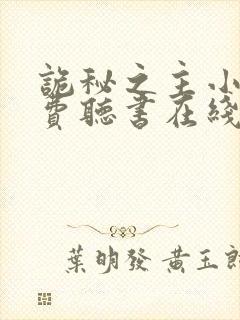 詭秘之主小
費聽書在綫
葉明發 黃玉郎